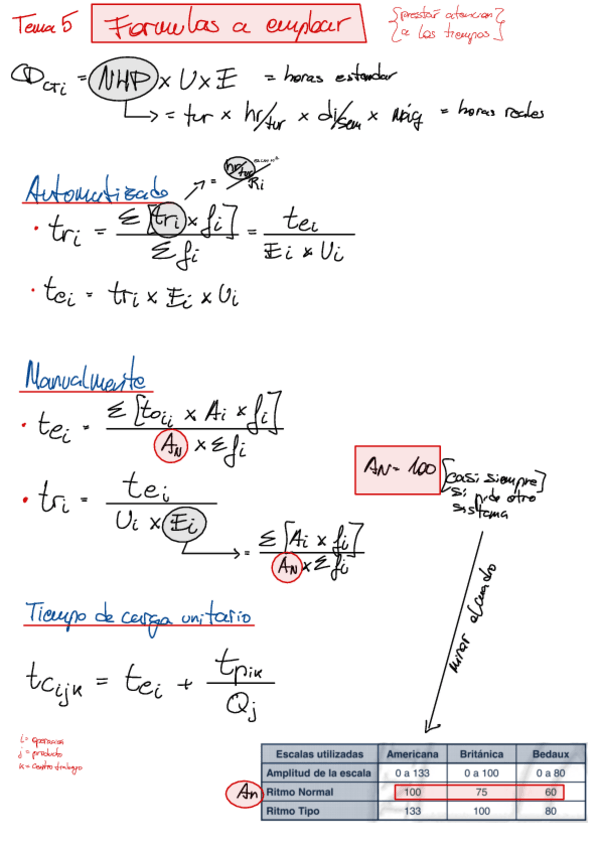 Tema 5 Formulas a emplear {prestar atencion}
{a los tiempos}
CD_CTi = NHP x U x E = horas estandar
= tur x hr/tur x dj/sem x máq = horas reales
Automatizado
= hr/tur / Ri
• tri = Σ [tri x fi] / Σ fi = tei / Ei x Ui
• tei = tri x Ei x Ui
Manualmente
• tei = Σ [toij x Ai x fi] / AN x Σ fi
AN = 100 [casi siempre]
si pide otro
sistema
• tri = tei / Ui x Ei
= Σ [Ai x fi] / AN x Σ fi
mirar al cuadro
Tiempo de carga unitario
tcijk = tei + tpik / Qj
i = operacion
j = producto
k = centro trabajo
Escalas utilizadas Americana Británica Bedaux
Amplitud de la escala 0 a 133 0 a 100 0 a 80
An Ritmo Normal 100 75 60
Ritmo Tipo 133 100 80